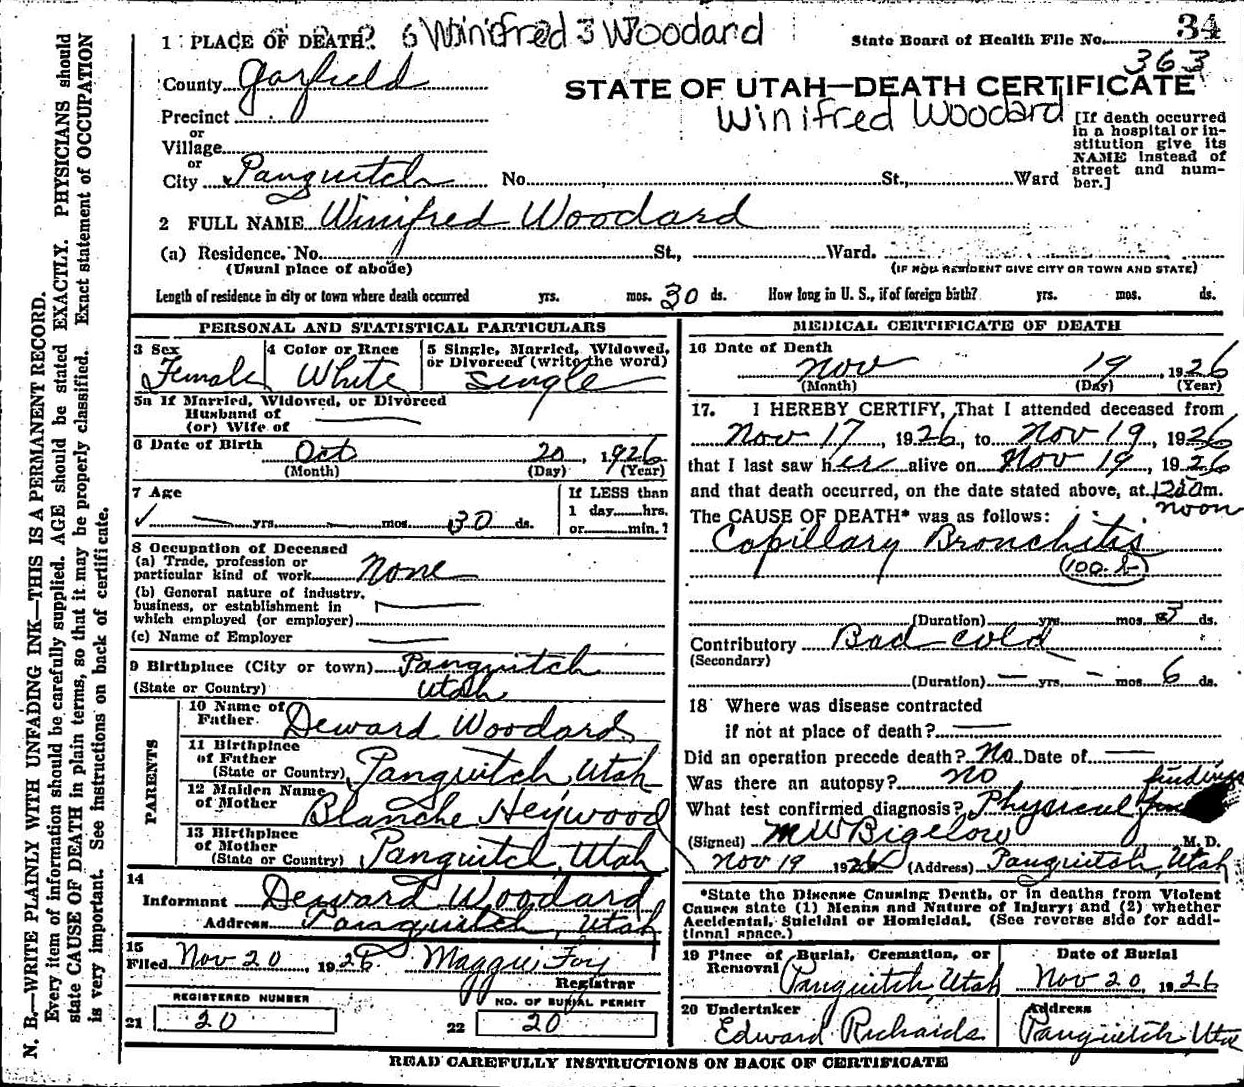 34
1 PLACE OF DEATH? 6 Winifred 3 Woodard State Board of Health File No.
363
County Garfield STATE OF UTAH—DEATH CERTIFICATE
Winifred Woodard
Precinct
or
Village
or
City Panguitch No. St., Ward
[If death occurred
in a hospital or in-
stitution give its
NAME instead of
street and num-
ber.]
2 FULL NAME Winifred Woodard
(a) Residence. No. St., Ward.
(Usual place of abode) (IF NON RESIDENT GIVE CITY OR TOWN AND STATE)
Length of residence in city or town where death occurred yrs. mos. 30 ds. How long in U. S., if of foreign birth? yrs. mos. ds.
PERSONAL AND STATISTICAL PARTICULARS
3 Sex 4 Color or Race 5 Single, Married, Widowed,
or Divorced (write the word)
Female White Single
5a If Married, Widowed, or Divorced
Husband of
(or) Wife of
6 Date of Birth Oct 20, 1926
(Month) (Day) (Year)
7 Age If LESS than
1 day hrs.
yrs. mos. 30 ds. or min.?
8 Occupation of Deceased
(a) Trade, profession or
particular kind of work None
(b) General nature of industry,
business, or establishment in
which employed (or employer)
(c) Name of Employer
9 Birthplace (City or town) Panguitch
(State or Country) Utah
PARENTS
10 Name of
Father Deward Woodard
11 Birthplace
of Father
(State or Country) Panguitch, Utah
12 Maiden Name
of Mother Blanche Heywood
13 Birthplace
of Mother
(State or Country) Panguitch, Utah
14
Informant Deward Woodard
Address Panguitch, Utah
15
Filed Nov 20, 1926 Maggie Foy
Registrar
REGISTERED NUMBER NO. OF BURIAL PERMIT
21 20 22 20
MEDICAL CERTIFICATE OF DEATH
16 Date of Death
Nov 19, 1926
(Month) (Day) (Year)
17. I HEREBY CERTIFY, That I attended deceased from
Nov 17, 1926, to Nov 19, 1926
that I last saw her alive on Nov 19, 1926
and that death occurred, on the date stated above, at m.
noon
The CAUSE OF DEATH* was as follows:
Capillary Bronchitis
100-b
(Duration) yrs. mos. 3 ds.
Contributory Bad cold
(Secondary)
(Duration) yrs. mos. 6 ds.
18 Where was disease contracted
if not at place of death?
Did an operation precede death? No Date of
Was there an autopsy? no
findings
What test confirmed diagnosis? Physical
(Signed) M W Bigelow M. D.
Nov 19 1926 (Address) Panguitch, Utah
*State the Disease Causing Death, or in deaths from Violent
Causes state (1) Means and Nature of Injury; and (2) whether
Accidental, Suicidal or Homicidal. (See reverse side for addi-
tional space.)
19 Place of Burial, Cremation, or
Removal Panguitch, Utah
Date of Burial
Nov 20, 1926
20 Undertaker Address
Edward Richards Panguitch Utah
READ CAREFULLY INSTRUCTIONS ON BACK OF CERTIFICATE
N. B.—WRITE PLAINLY WITH UNFADING INK—THIS IS A PERMANENT RECORD.
Every item of information should be carefully supplied. AGE should be stated EXACTLY. PHYSICIANS should
state CAUSE OF DEATH in plain terms, so that it may be properly classified. Exact statement of OCCUPATION
is very important. See Instructions on back of certificate.